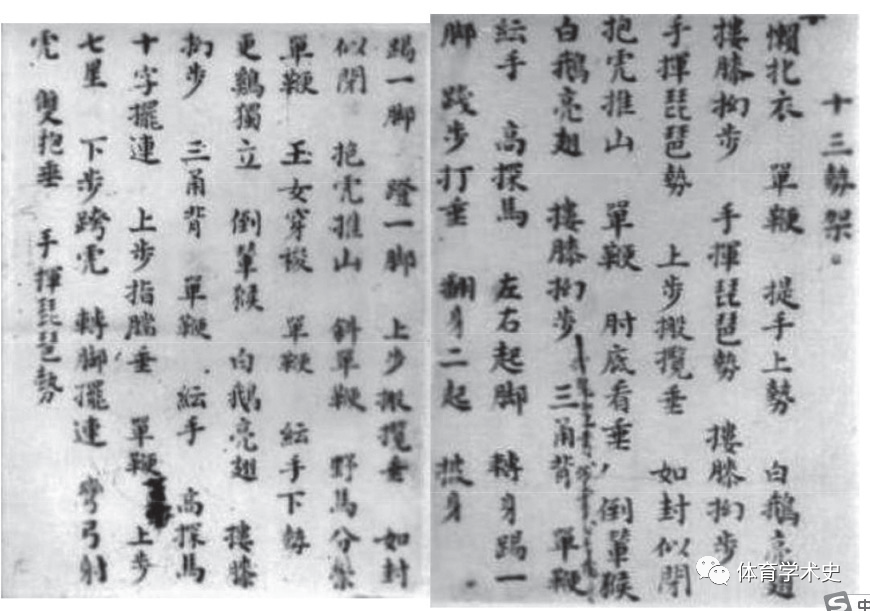 十三勢架。
懶扎衣 單鞭 提手上勢 白鵝亮翅
摟膝拗步 手揮琵琶勢 摟膝拗步
手揮琵琶勢 上步搬攬垂 如封似閉
抱虎推山 單鞭 肘底看垂 倒輦猴
白鵝亮翅 摟膝拗步 三甬背 單鞭
紜手 高探馬 左右起脚 轉身踢一
脚 踐步打垂 翻身二起 披身
踢一脚 蹬一脚 上步搬攬垂 如封
似閉 抱虎推山 斜單鞭 野馬分鬃
單鞭 玉女穿梭 單鞭 紜手下勢
更鷄獨立 倒輦猴 白鵝亮翅 摟膝
拗步 三甬背 單鞭 紜手 高探馬
十字擺連 上步指膪垂 單鞭 上步
七星 下步跨虎 轉脚擺連 彎弓射
虎 雙抱垂 手揮琵琶勢
体育学术史
中